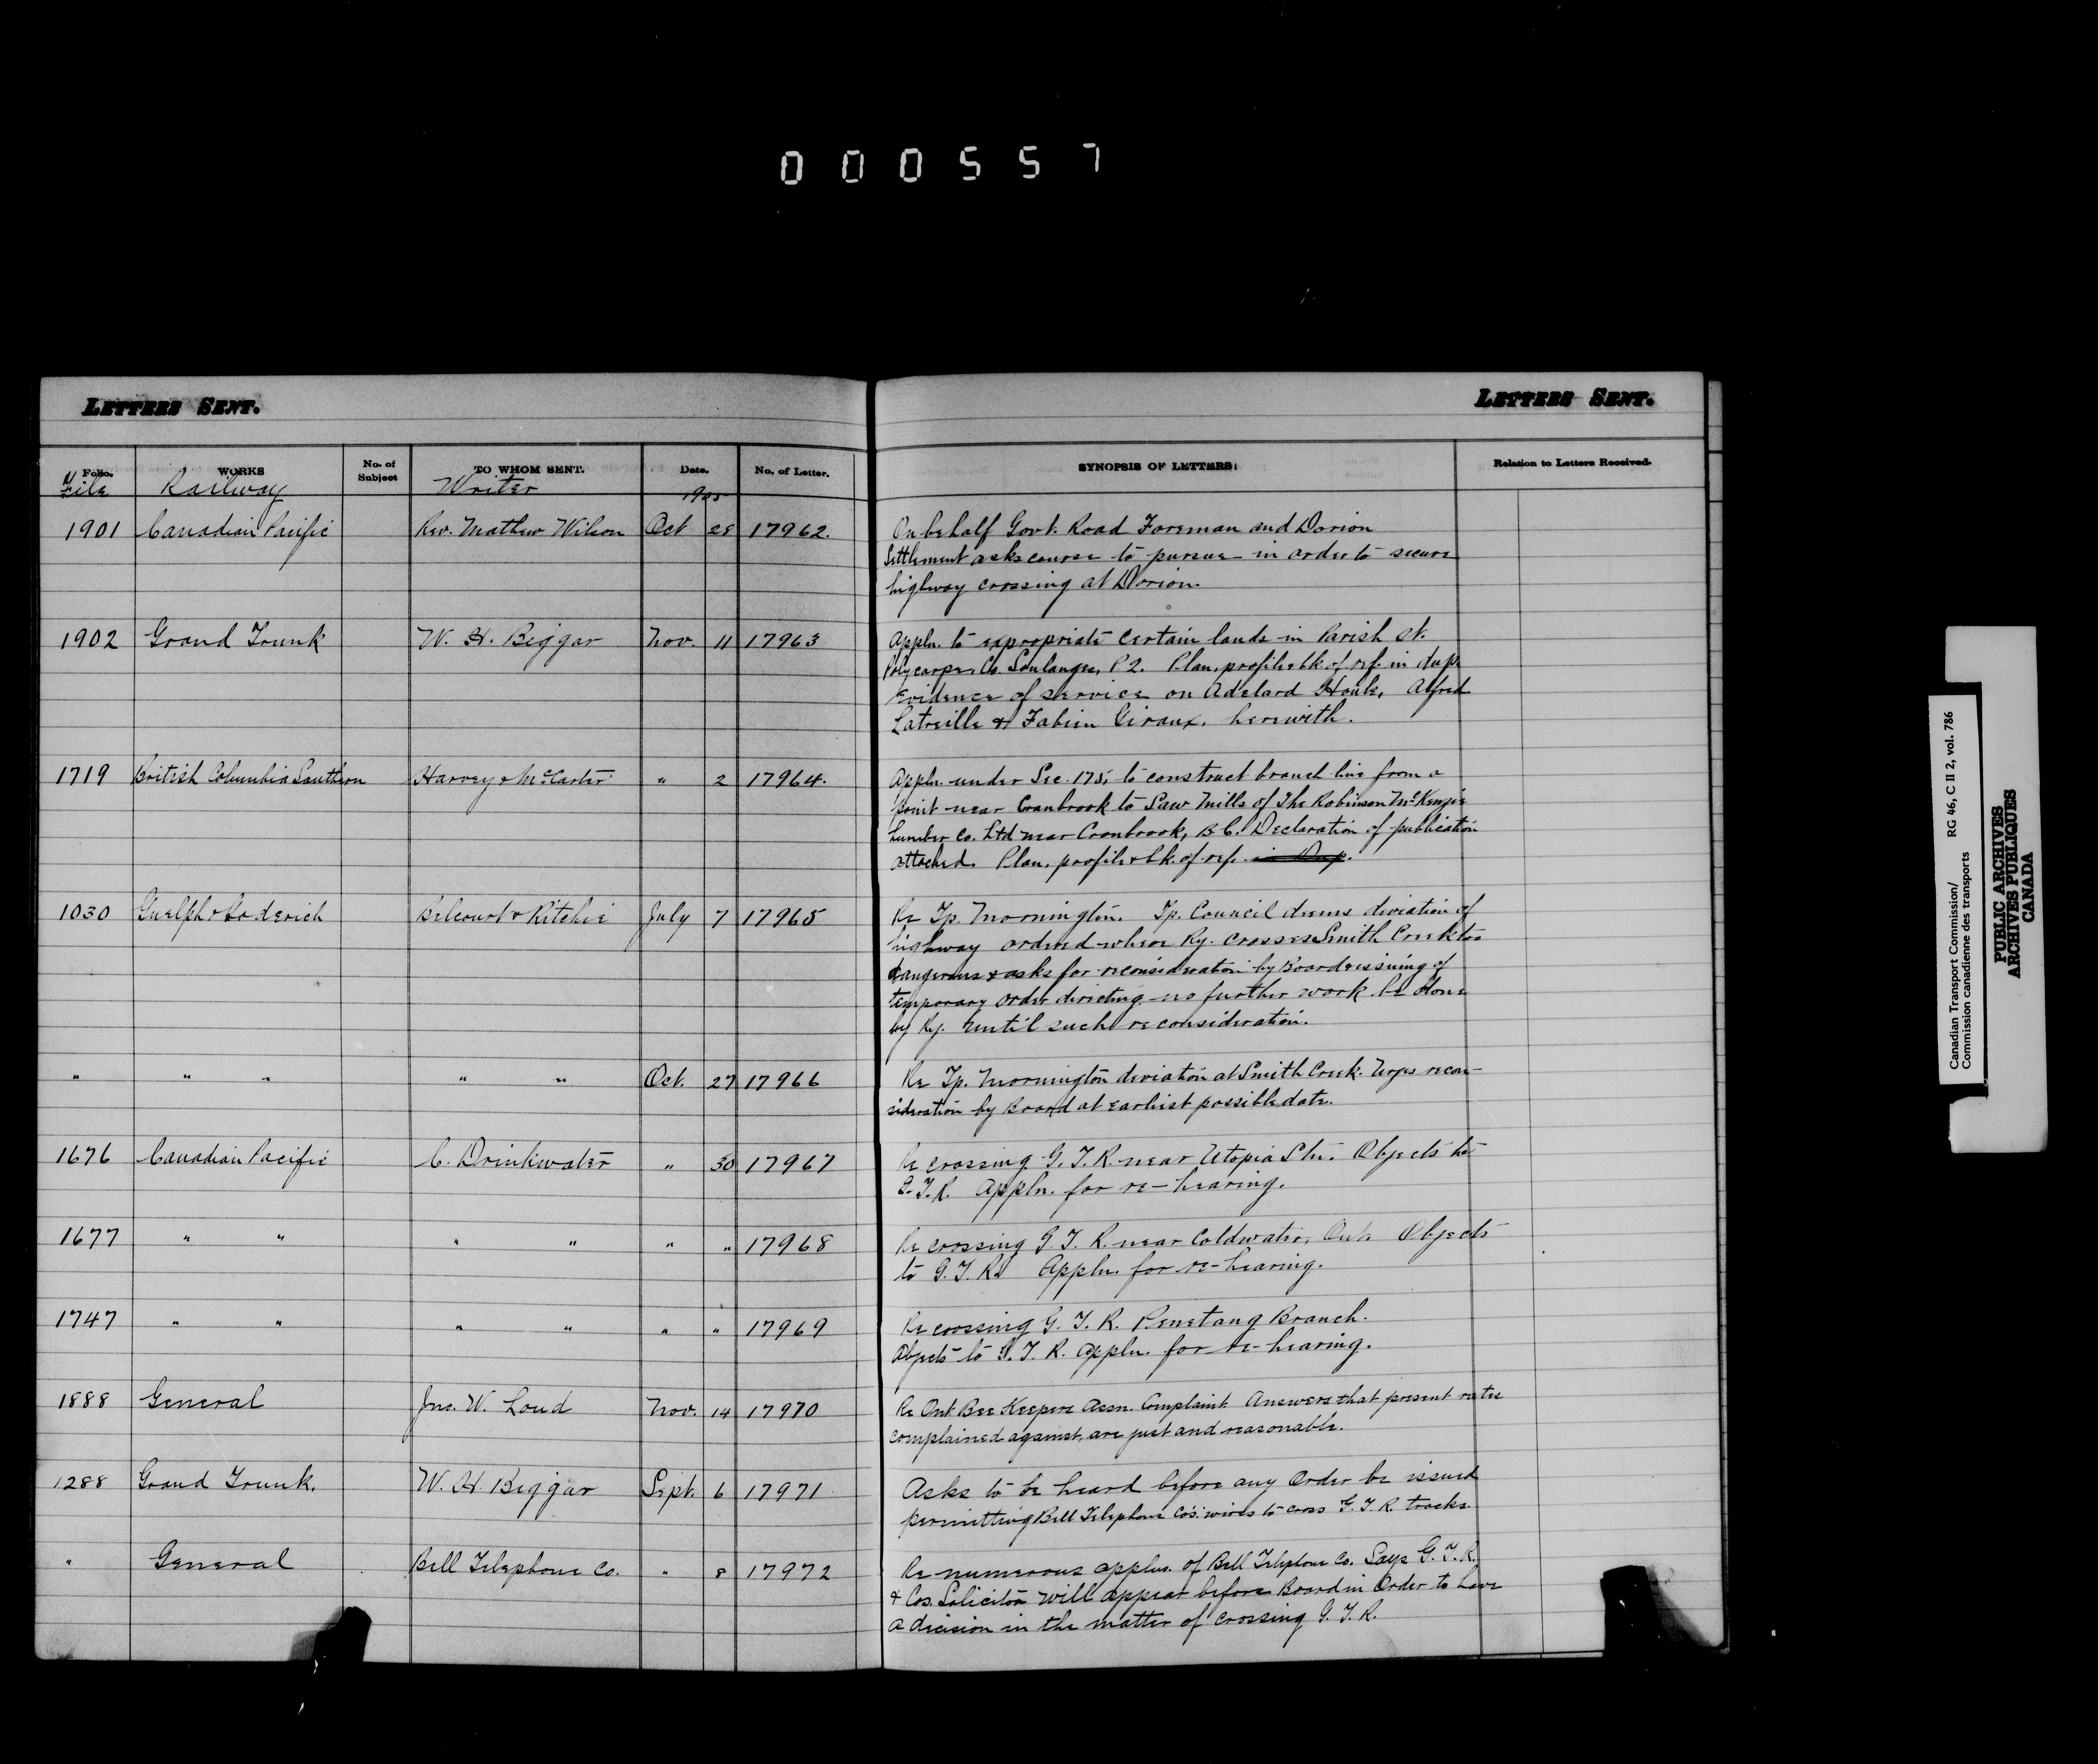 000557
LETTERS SENT.
LETTERS SENT.
Folio. WORKS No. of Subject TO WHOM SENT. Date. No. of Letter. SYNOPSIS OF LETTERS: Relation to Letters Received.
File Railway Writer 1905
1901 Canadian Pacific Rev. Mathew Wilson Oct 28 17962. On behalf Govt. Road Foreman and Dorion
Settlement asks course to pursue in order to secure
highway crossing at Dorion.
1902 Grand Trunk W. H. Biggar Nov. 11 17963 Appln. to expropriate certain lands in Parish St.
Polycarpe, Co. Soulanges, P2. Plan, profile & bk. of ref. in dup.
Evidence of service on Adelard Houle, Alfred
Latreille & Fabien Giroux, herewith.
1719 British Columbia Southern Harvey & McCarter " 2 17964. Appln. under Sec. 175, to construct branch line from a
point near Cranbrook to Saw Mills of The Robinson McKenzie
Lumber Co. Ltd near Cranbrook, B.C. Declaration of publication
attached. Plan, profile & bk. of ref. in Dup.
1030 Guelph & Goderich Belcourt & Ritchie July 7 17965 Re Tp. Mornington. Tp. Council deems deviation of
highway ordered where Ry. crosses Smith Creek too
dangerous & asks for reconsideration by Board & issuing of
temporary order directing no further work be done
by Ry. until such reconsideration.
" " " " " Oct. 27 17966 Re Tp. Mornington deviation at Smith Creek. Urges recon-
sideration by Board at earliest possible date.
1676 Canadian Pacific C. Drinkwater " 30 17967 Re crossing G.T.R. near Utopia Stn. Objects to
G.T.R. Appln. for re-hearing.
1677 " " " " " " 17968 Re crossing G.T.R. near Coldwater, Ont. Objects
to G.T.R. Appln. for re-hearing.
1747 " " " " " " 17969 Re crossing G.T.R. Penetang Branch.
Objects to G.T.R. appln. for re-hearing.
1888 General Jno. W. Loud Nov. 14 17970 Re Ont Bee Keepers Assn. Complaint. Answers that present rates
complained against, are just and reasonable.
1288 Grand Trunk. W. H. Biggar Sept. 6 17971 Asks to be heard before any Order be issued
permitting Bell Telephone Co's. wires to cross G.T.R. tracks.
" General Bell Telephone Co. " 8 17972 Re numerous applns. of Bell Telephone Co. Says G.T.R.
& Cos. Solicitor will appear before Board in Order to have
a decision in the matter of crossing G.T.R.
Canadian Transport Commission/ RG 46, C II 2, vol. 786
Commission canadienne des transports
PUBLIC ARCHIVES
ARCHIVES PUBLIQUES
CANADA